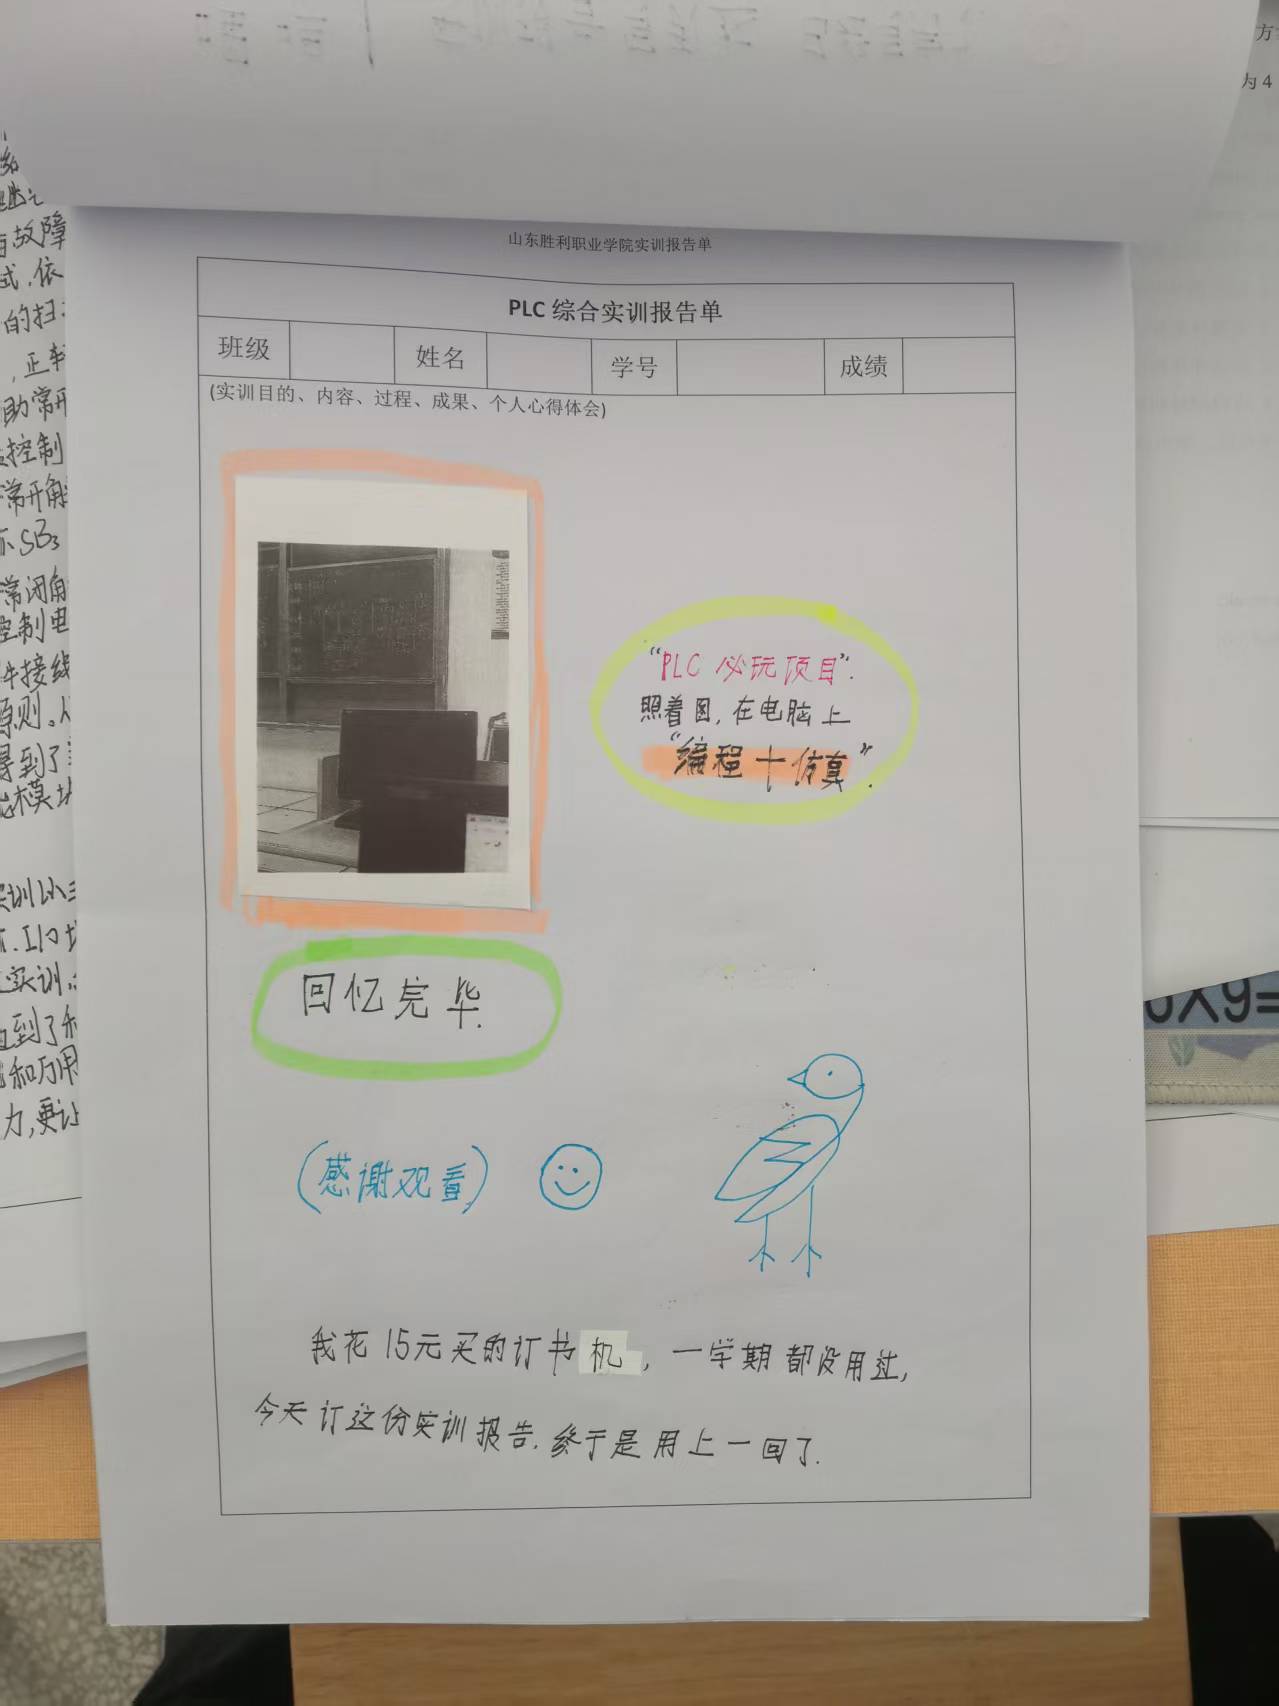 方
为 4
山东胜利职业学院实训报告单
PLC 综合实训报告单
班级 姓名 学号 成绩
(实训目的、内容、过程、成果、个人心得体会)
“PLC 必玩项目”.
照着图,在电脑上
“编程+仿真”.
回忆完毕.
(感谢观看)
我花15元买的订书机,一学期都没用过,
今天订这份实训报告.终于是用上一回了.
故障
式,依
的扫
,正转
助常开
控制
常开触
SB3
常闭触
控制电
件接线
原则。从
得到了
模块
实训以
实训
到了
和万用
力,更让